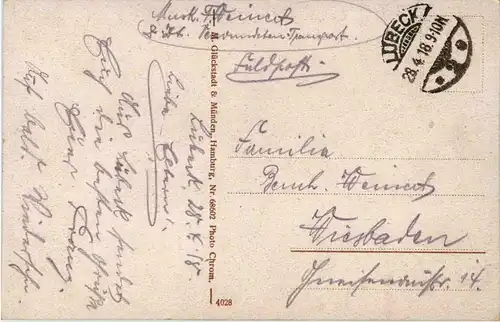 Musk. F. Weinert
z. Zt. Verwundeten-Transport.
Feldpost.
LÜBECK
28.4.18.9-10N.
Familie
Bernh. Weinert
Wiesbaden
Gneisenaustr. 14.
M. Glückstadt & Münden, Hamburg, Nr. 68502 Photo Chrom.
4028
Lübeck, 28.4.18
Liebe Eltern!
Aus Lübeck sendet
Euch die besten Grüße
Euer Franz.
Auf bald. Wiedersehn.